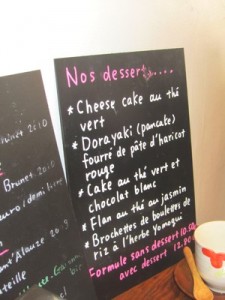 Nos dessert.....
* Cheese cake au thé
vert
* Dorayaki (pancake)
fourré de pâte d'haricot
rouge
* Cake au thé vert et
chocolat blanc
* Flan au thé au jasmin
* Brochettes de boulettes de
riz à l'herbe Yomogui
Formule sans dessert 10.50
avec dessert 12.00
Brunet 20